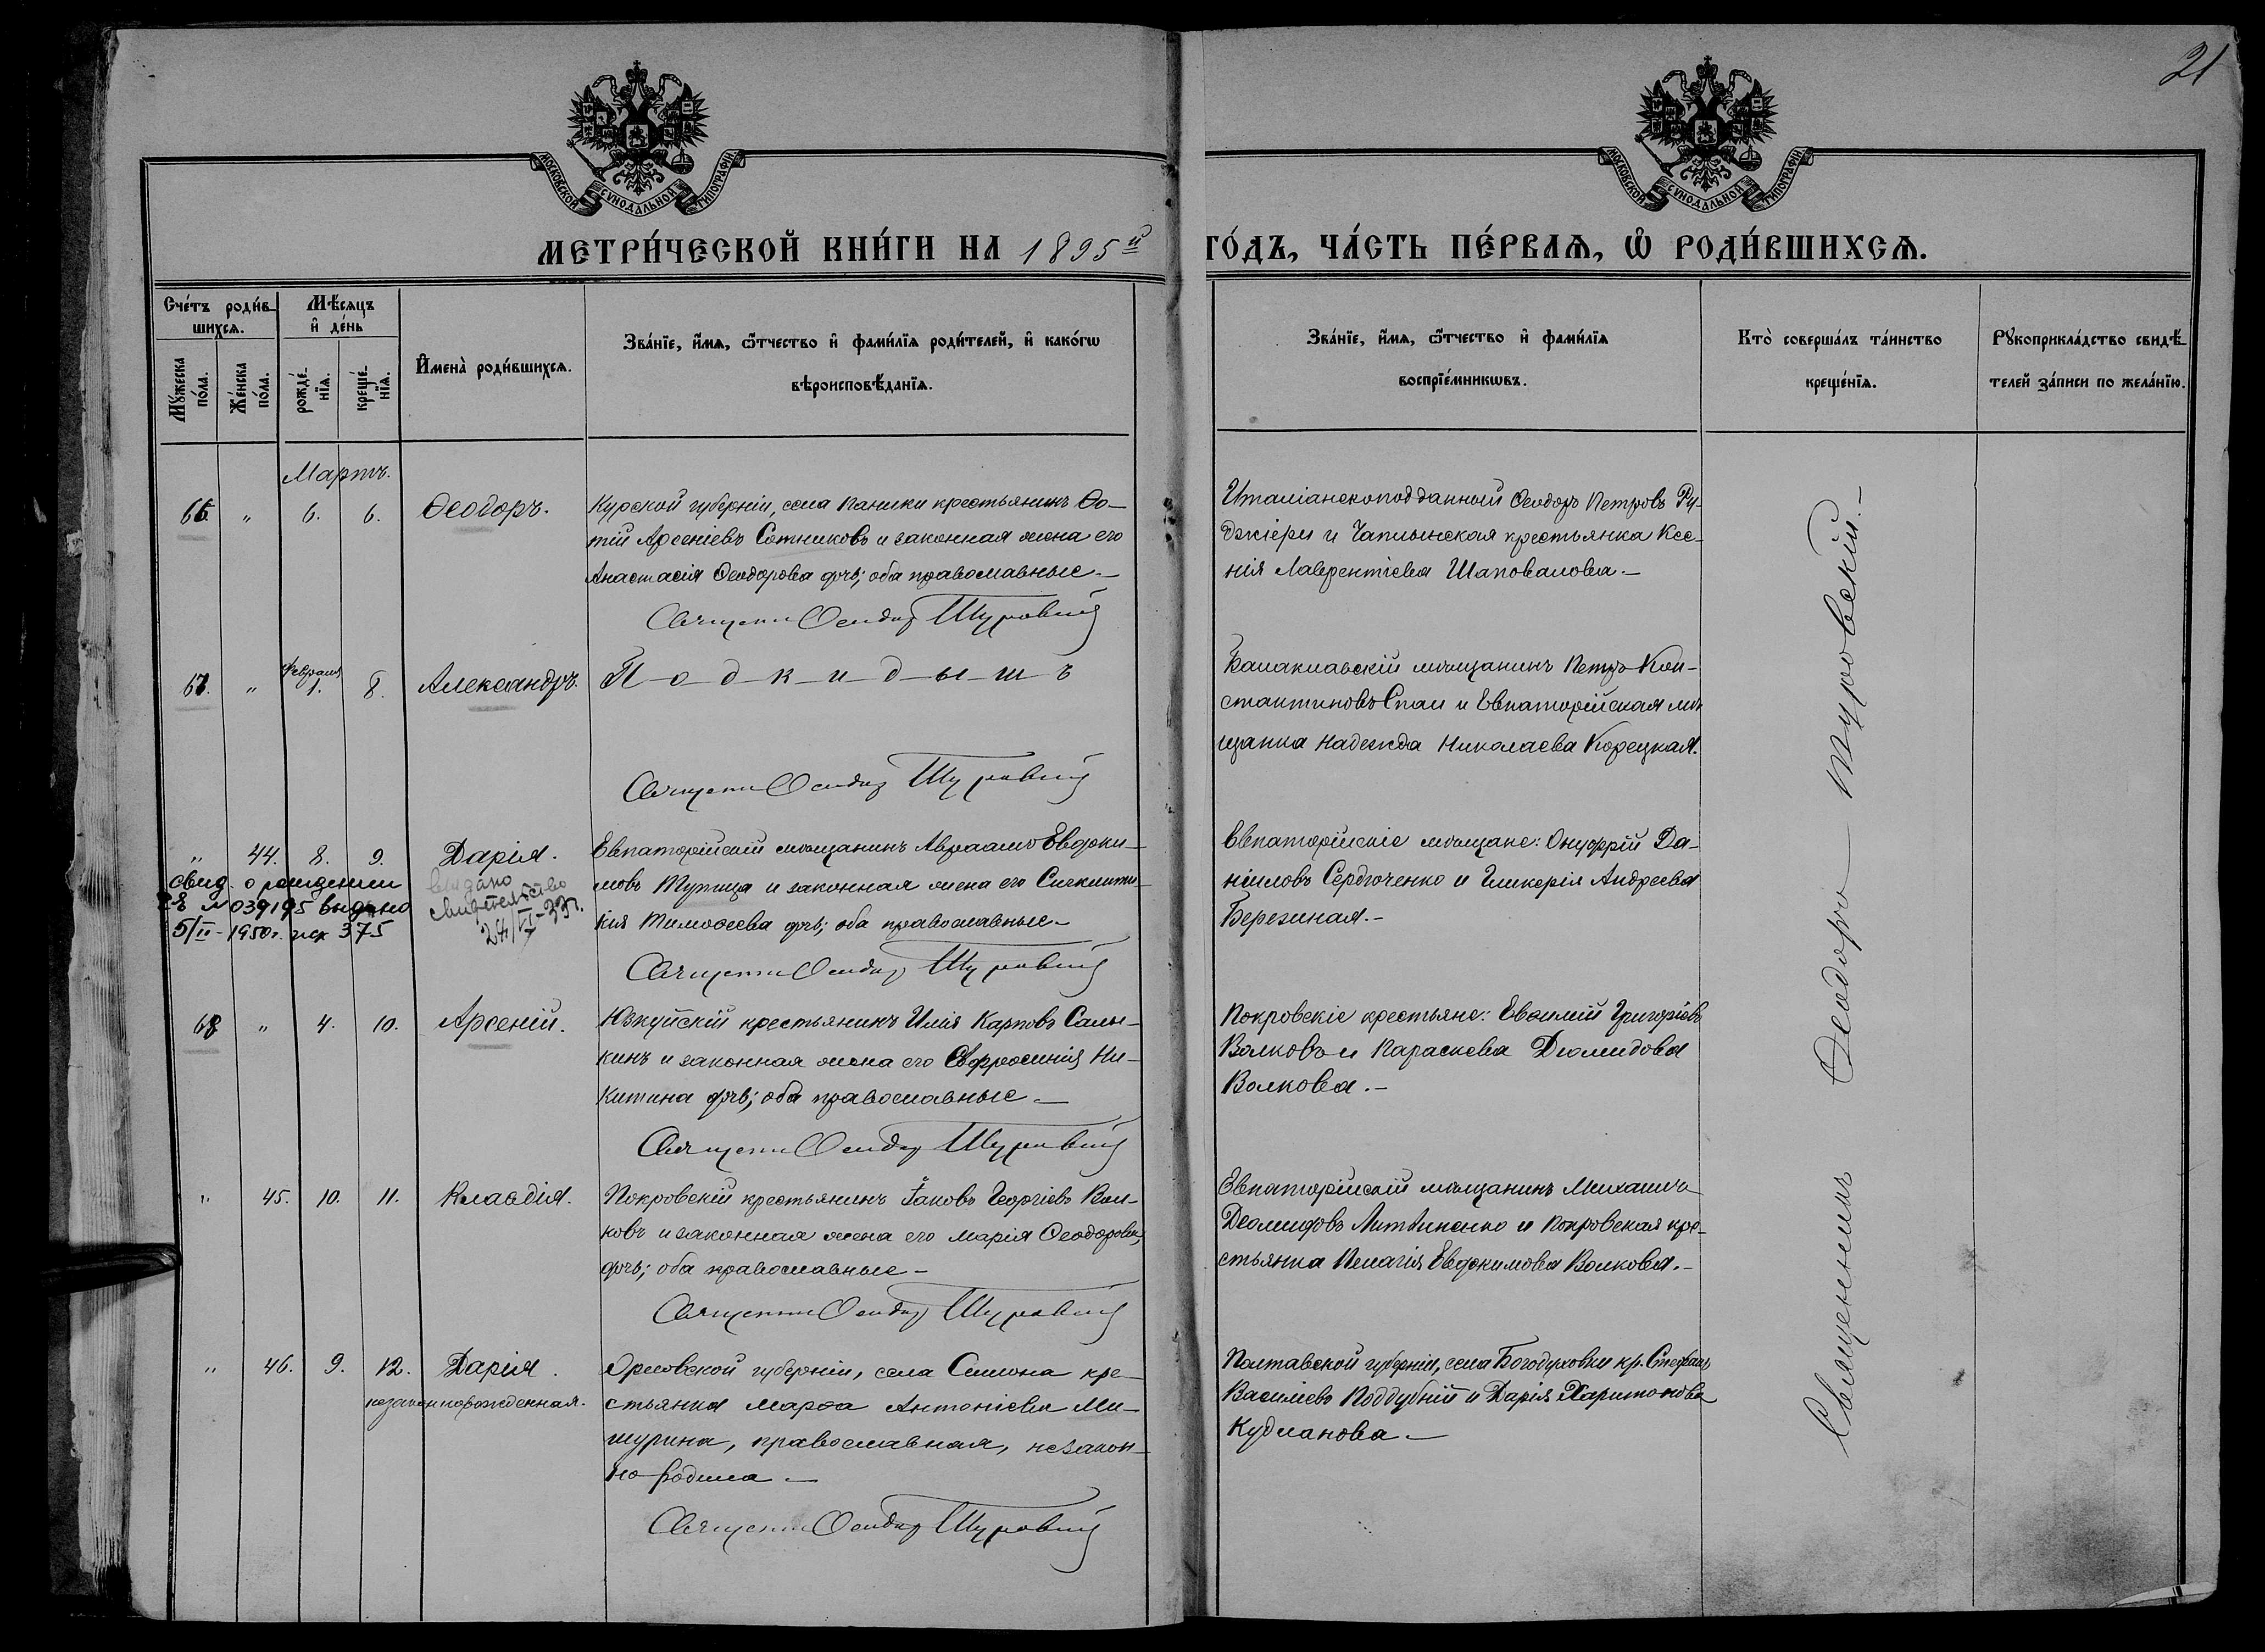 21
МОСКОВСКОЙ СѴНОДАЛЬНОЙ ТИПОГРАФІИ
МОСКОВСКОЙ СѴНОДАЛЬНОЙ ТИПОГРАФІИ
МЕТРИ́ЧЕСКОЙ КНИ́ГИ НА 1895й ГО́ДЪ, ЧА́СТЬ ПЕ́РВАѦ, Ѡ҆ РОДИ́ВШИХСѦ.
Сче́тъ роди́в-
шихсѧ.
Мꙋ́жеска по́ла.
Же́нска по́ла.
Мѣ́сѧцъ
и҆ де́нь
рожде́-нїѧ.
креще́-нїѧ.
И҆мена̀ роди́вшихсѧ.
Зва́нїе, и҆́мѧ, ѻ҆́тчество и҆ фами́лїѧ роди́телей, и҆ како́гѡ
вѣроисповѣ́данїѧ.
Зва́нїе, и҆́мѧ, ѻ҆́тчество и҆ фами́лїѧ
воспрїе́мникѡвъ.
Кто̀ соверша́лъ та́инство
креще́нїѧ.
Рꙋкоприкла́дство свидѣ́-
телей за́писи по жела́нїю.
Мартъ.
66. " 6. 6. Ѳеодоръ.
Курской губерніи, села Паники крестьянинъ Фо-
тій Арсеніевъ Сотниковъ и законная жена его
Анастасія Ѳеодорова дочь; оба православные.—
Священн Ѳеодор Щуровскій
Италіанскоподданный Ѳеодоръ Петровъ Ру-
джіери и Чаплынская крестьянка Ксе-
нія Лаврентіева Шаповалова.—
67. " Февраля 1. 8. Александръ.
П-о-д-к-и-д-ы-ш-ъ
Священн Ѳеодор Щуровскій
Балаклавскій мѣщанинъ Петръ Кон-
стантиновъ Спаи и Евпаторійская мѣ-
щанка Надежда Николаева Корецкая.
" 44. 8. 9. Дарія.
свид. о рождении
039195 выдано
5/II-1950г. 375
выдано
свидетельство
24/VI-33г.
Евпаторійскій мѣщанинъ Авраамъ Евдоки-
мовъ Тутица и законная жена его Синклити-
кія Тимоѳеева дочь; оба православные.—
Священн Ѳеодор Щуровскій
Евпаторійскіе мѣщане: Онуфрій Да-
ніиловъ Сердюченко и Гликерія Андреева
Березиная.-
68 " 4. 10. Арсеній.
Юзкуйскій крестьянинъ Илія Карповъ Салы-
кинъ и законная жена его Евфросинія Ни-
китина дочь; оба православные.—
Священн Ѳеодор Щуровскій
Покровскіе крестьяне: Евѳимій Григоріевъ
Волковъ и Параскева Діомидова
Волкова.-
" 45. 10. 11. Клавдія.
Покровскій крестьянинъ Іаковъ Георгіевъ Вол-
ковъ и законная жена его Марія Ѳеодорова
дочь; оба православные-
Священн Ѳеодор Щуровскій
Евпаторійскій мѣщанинъ Михаилъ
Деомидовъ Литвиненко и Покровская кре-
стьянка Пелагія Евдокимова Волкова.-
" 46. 9. 12. Дарія.
незаконнорожденная.
Орловской губерніи, села Смиона кре-
стьянка Марѳа Антоніева Ми-
шурина, православная, незакон-
но-родила.—
Священн Ѳеодор Щуровскій
Полтавской губерніи, села Богодуховки кр. Стефанъ
Василіевъ Поддубній и Дарія Харитонова
Кудланова.—
Священникъ Ѳеодоръ Щуровскій.-